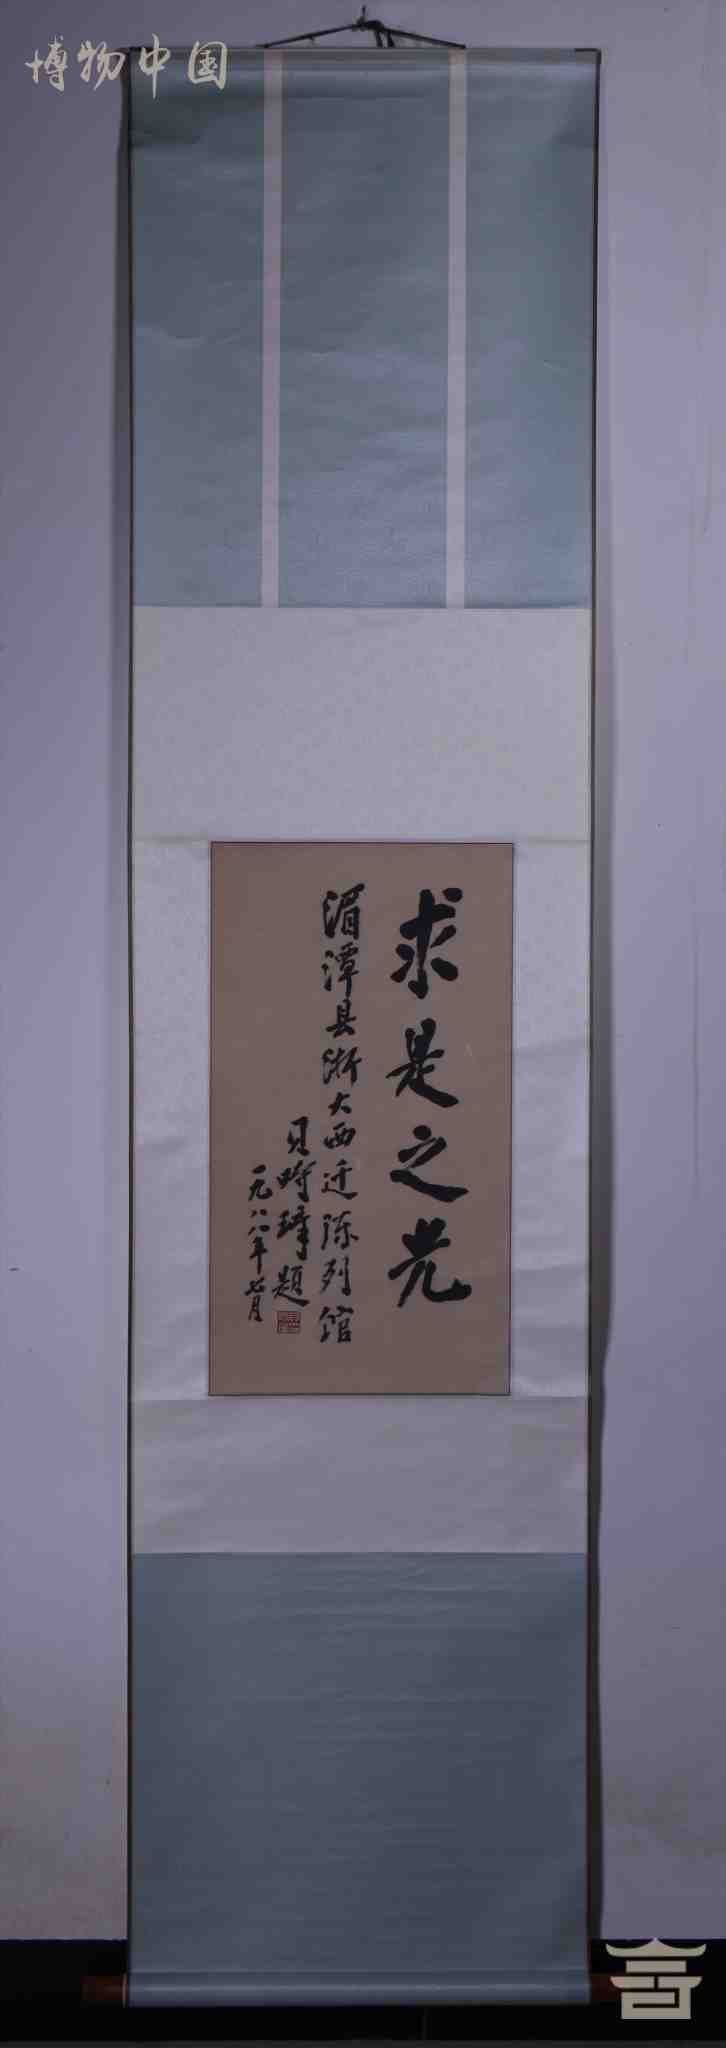 博物中国
求是之光
湄潭县浙大西迁陈列馆
贝时璋题
一九八八年七月